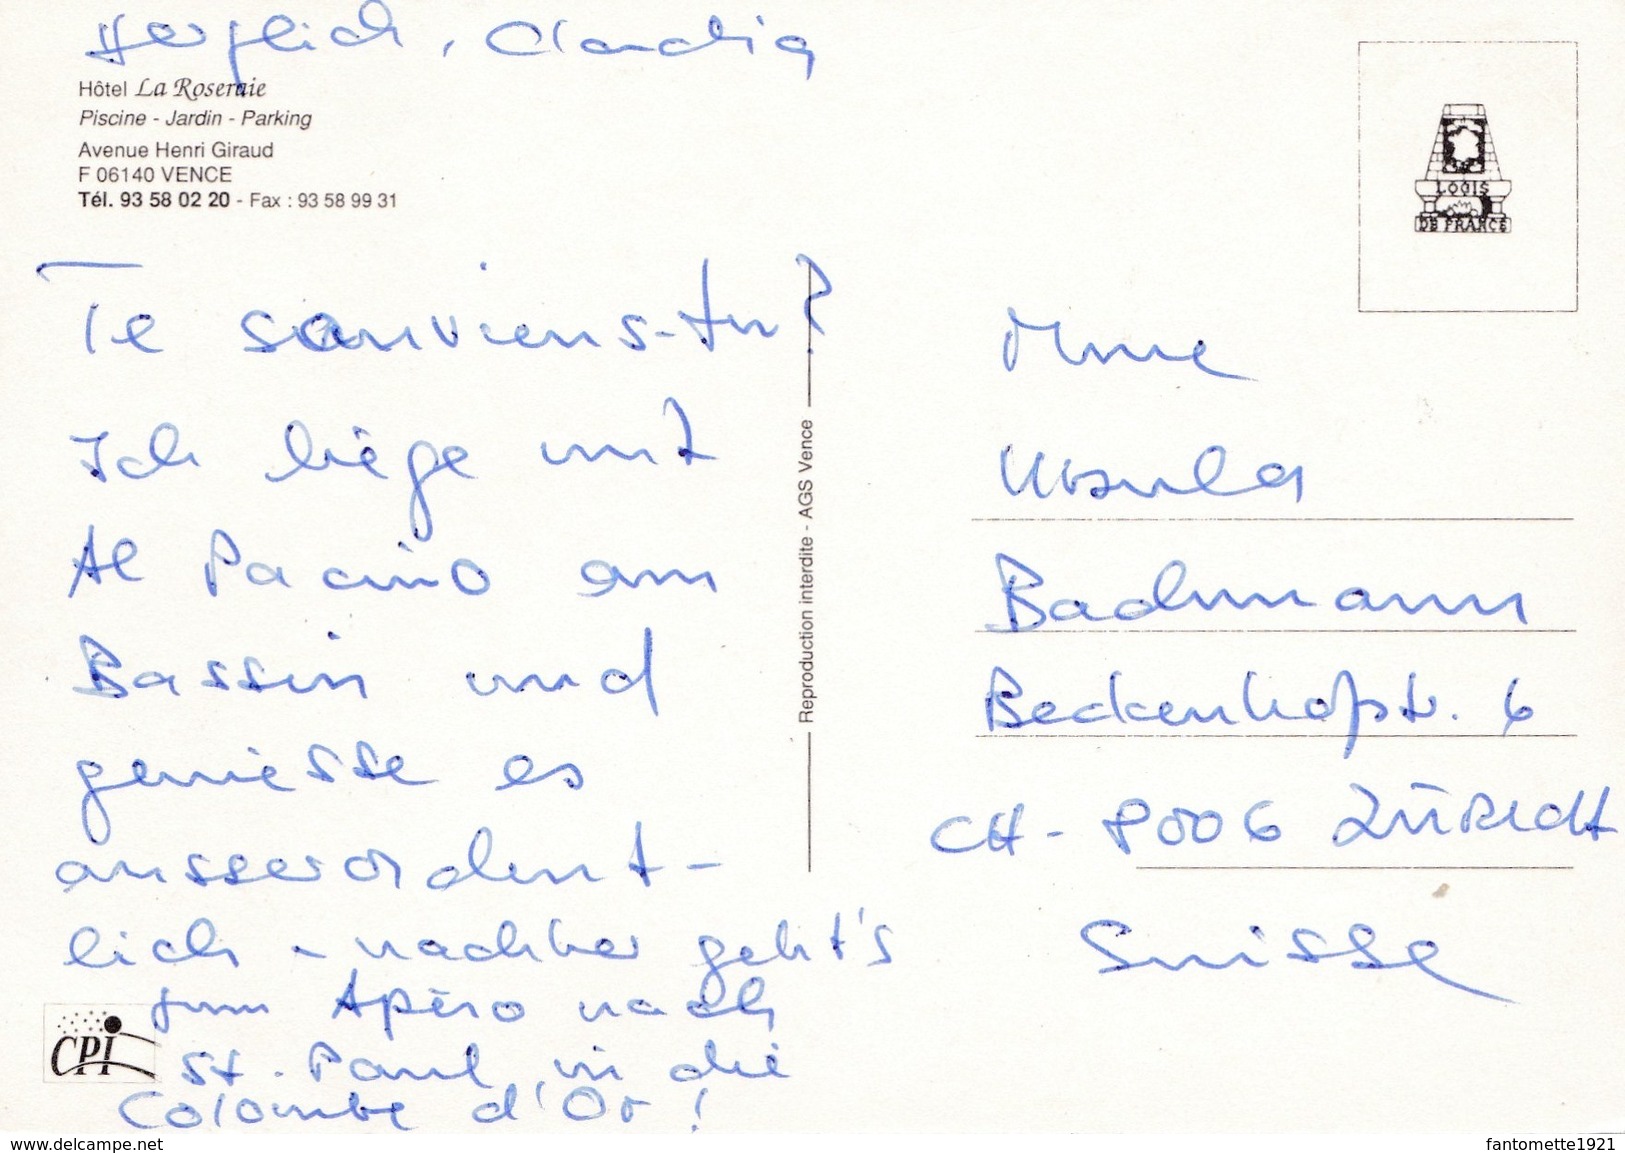 Herzlich, Claudia
Hôtel La Roseraie
Piscine - Jardin - Parking
Avenue Henri Giraud
F 06140 VENCE
Tél. 93 58 02 20 - Fax : 93 58 99 31
Te souviens-tu?
Ich liege mit
Al Pacino am
Bassin und
geniesse es
ausserordent-
lich - nachher geht's
zum Apéro nach
St. Paul, in die
Colombe d'Or!
CPI
Reproduction interdite - AGS Vence
LOGIS
DE FRANCE
Mme
Ursula
Bachmann
Beckenhofstr. 6
CH - 8006 ZÜRICH
Suisse
www.delcampe.net
fantomette1921